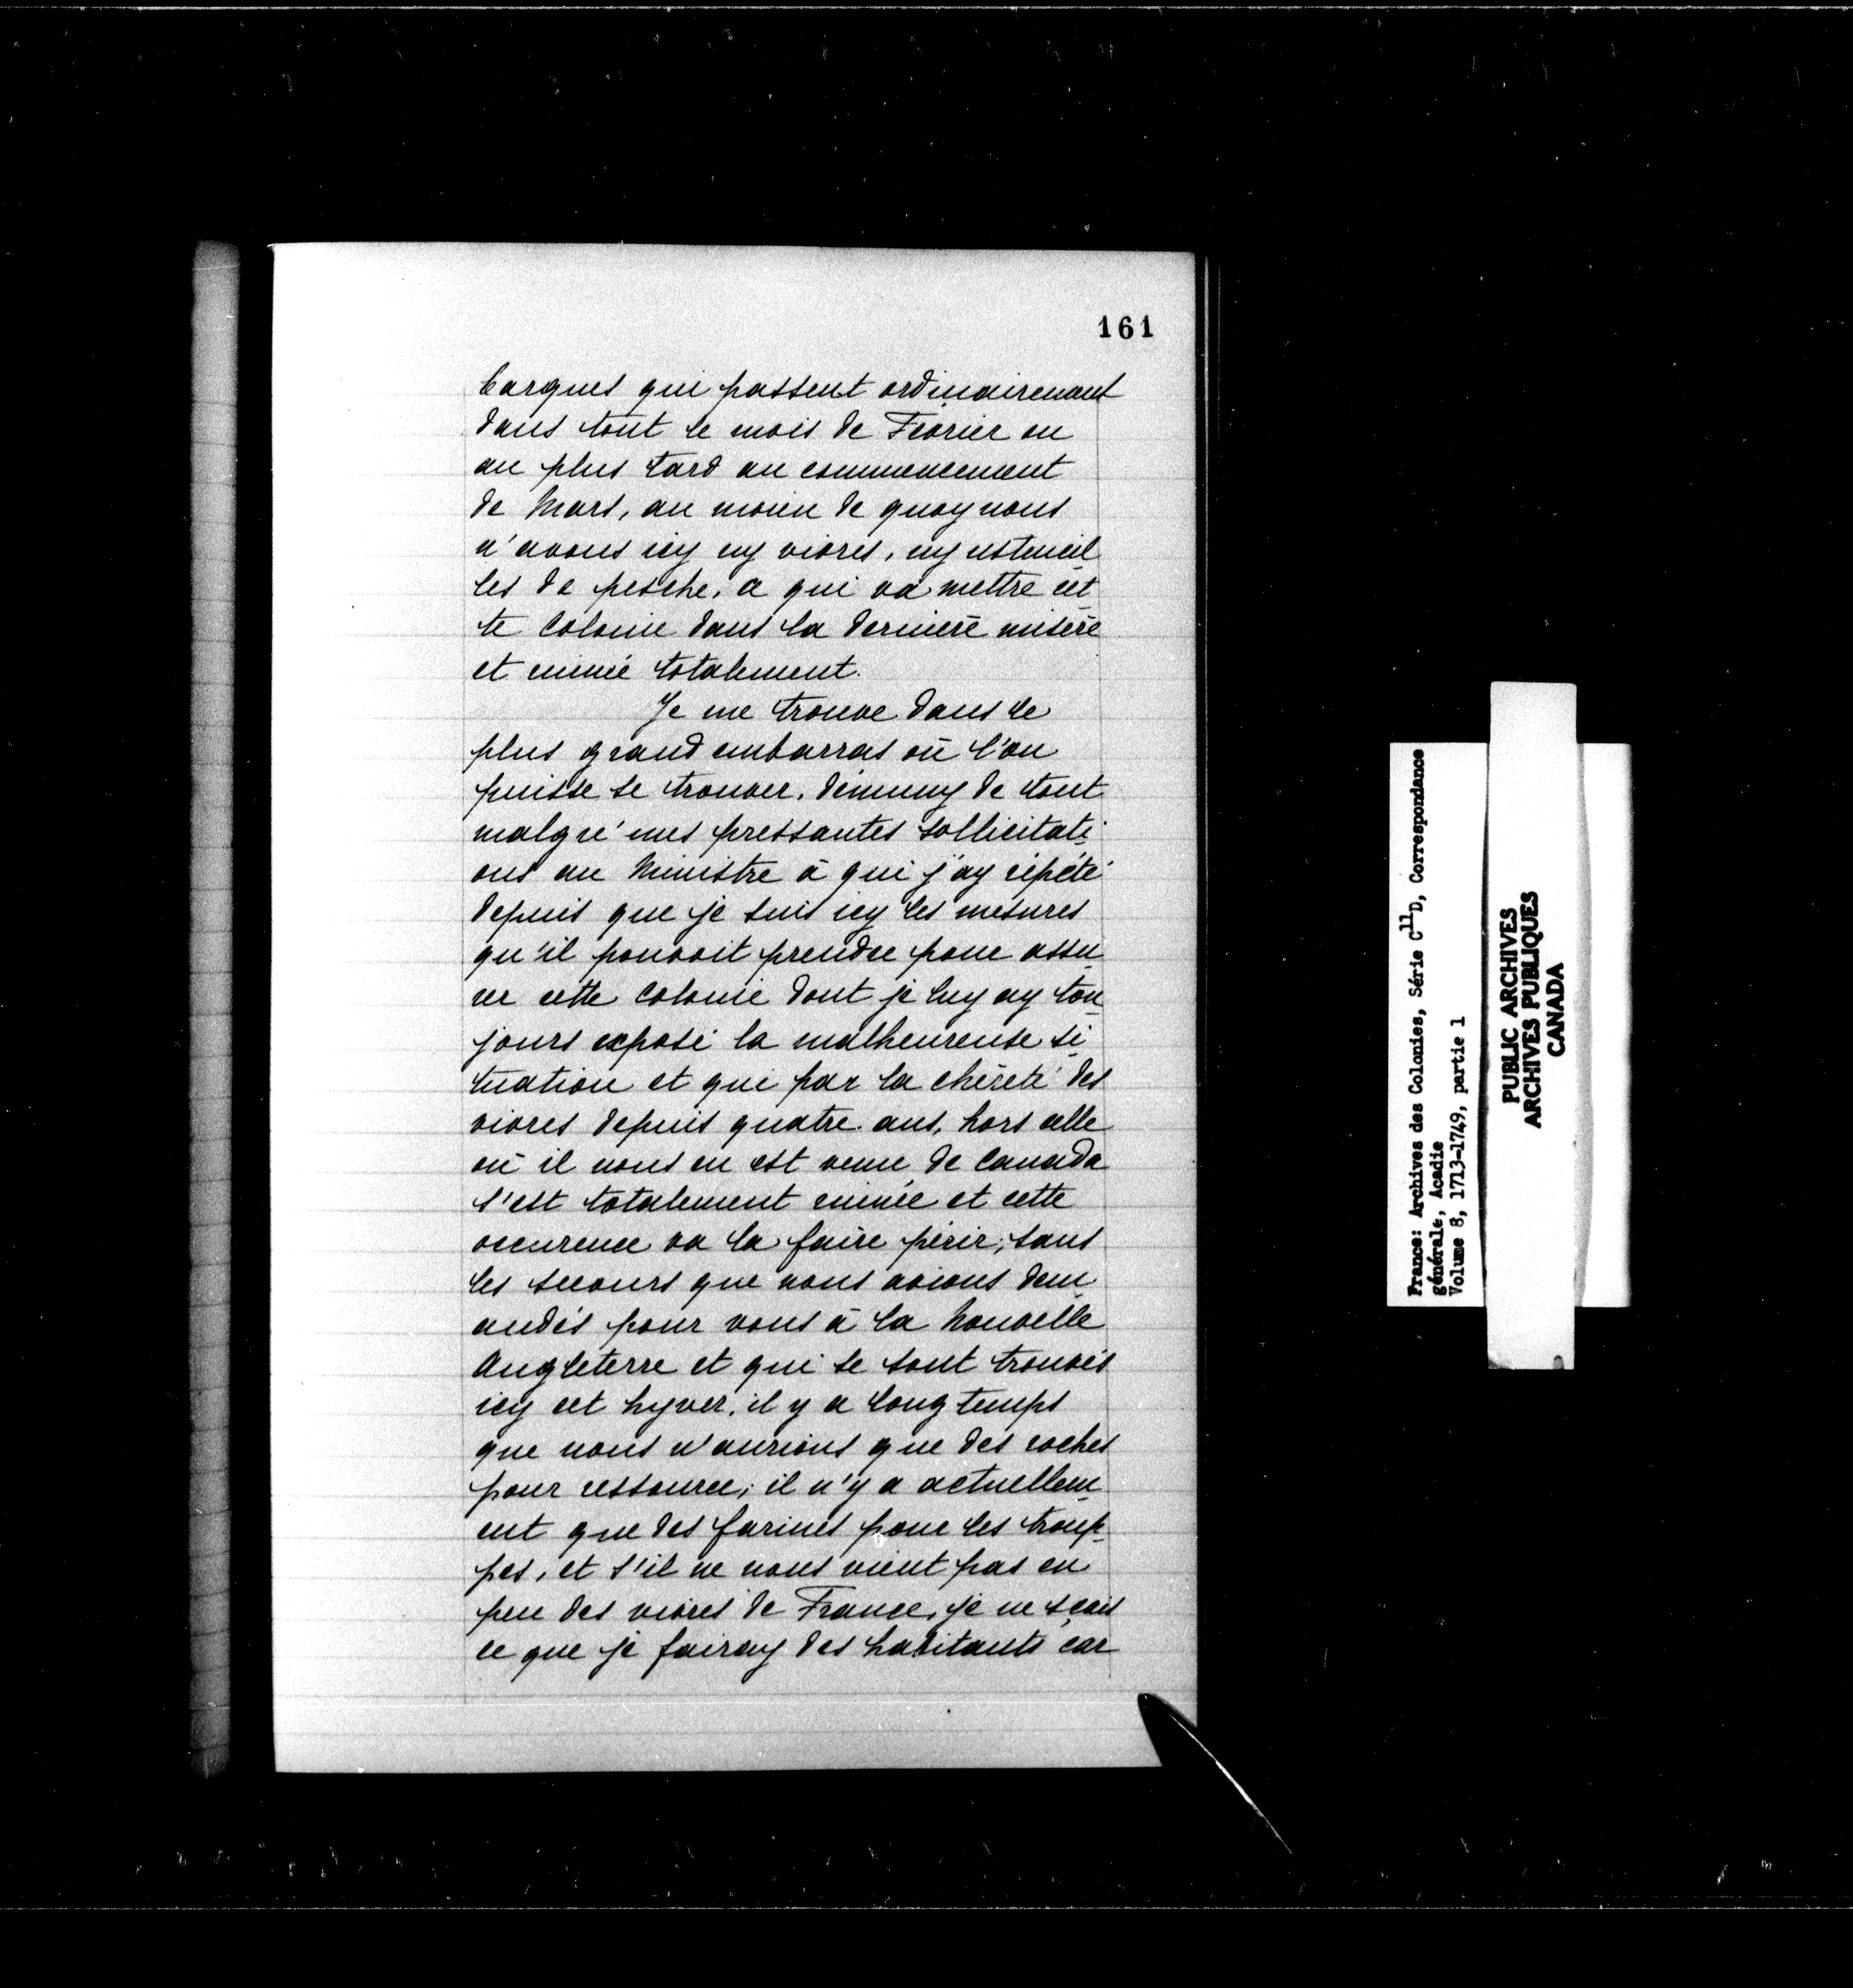 161
barques qui passent ordinairemant
dans tout le mois de Fevrier ou
au plus tard au commencement
de Mars, au moien de quoy nous
n'avons icy ny vivres, ny ustencil
les de pesche, ce qui va mettre cet
te Colonie dans la derniere misère
et ruinée totalement.
Je me trouve dans le
plus grand embarras où l'on
puisse se trouver, dénuny de tout
malgré mes pressantes sollicitati
ons au Ministre à qui j'ay répété
depuis que je suis icy les mesures
qu'il pouvoit prendre pour assu
rer cette Colonie dont je luy ay tou
jours exposé la malheureuse si
tuation et qui par la chèreté des
vivres depuis quatre ans, hors celle
où il nous en est venu de Canada
s'est totalement ruinée et cette
occurence va la faire périr; sans
les secours que nous avions dem
andés pour vous à la Nouvelle
Angleterre et qui se sont trouvés
icy cet hyver, il y a long temps
que nous n'aurions que des roches
pour ressource; il n'y a actuellem
ent que des farines pour les troup
pes, et s'il ne nous vient pas en
peu des vivres de France, je ne sçais
ce que je fairay des habitants car
France: Archives des Colonies, Série C11D, Correspondance
générale, Acadie
Volume 8, 1713-1749, partie 1
PUBLIC ARCHIVES
ARCHIVES PUBLIQUES
CANADA